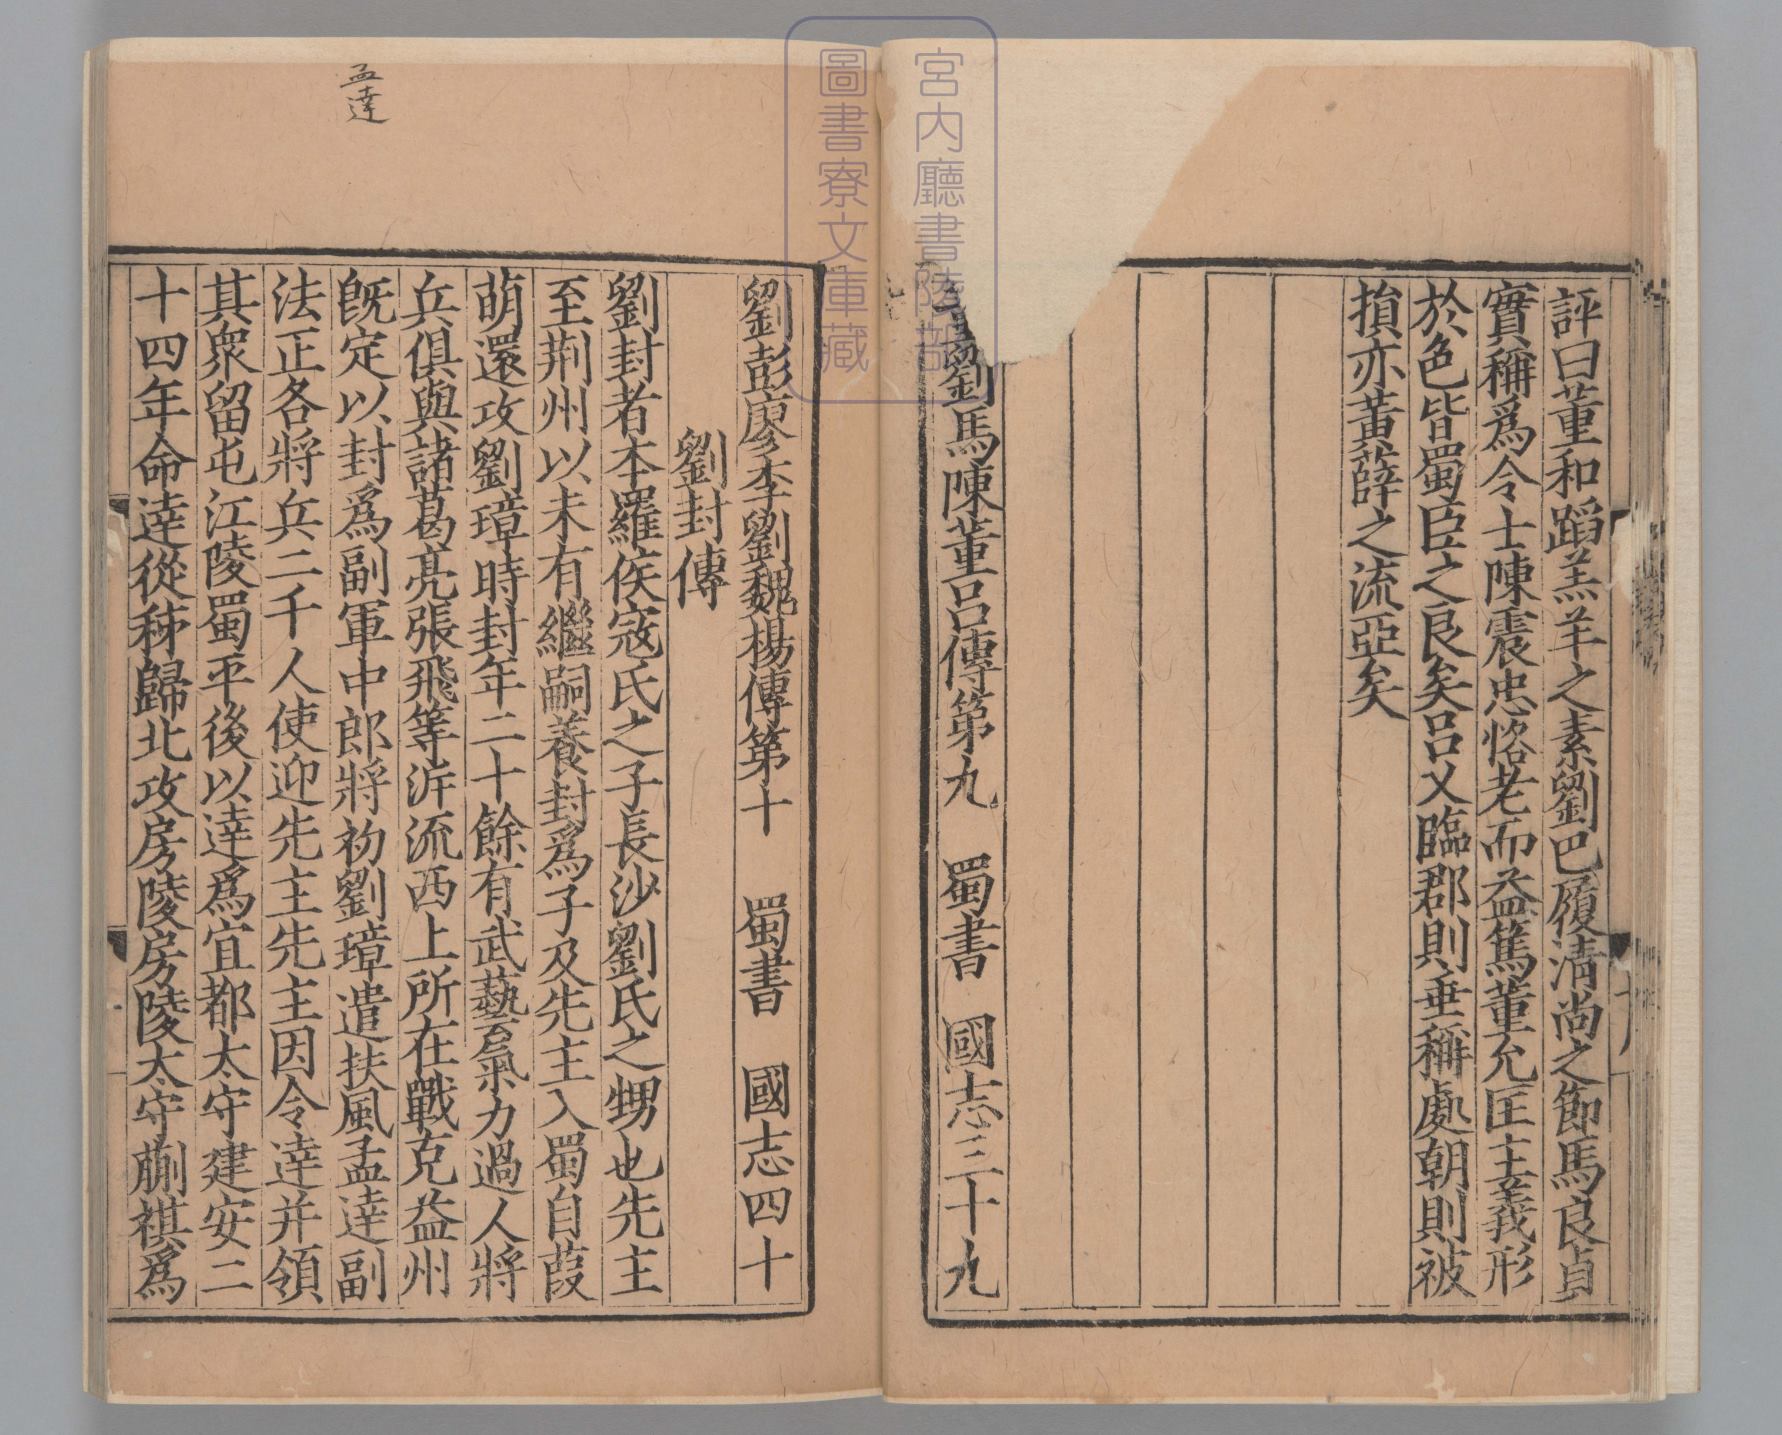 評曰董和蹈羔羊之素劉巴履清尚之節馬良貞
實稱爲令士陳震忠恪老而益篤董允匡主義形
於色皆蜀臣之良矣呂乂臨郡則垂稱處朝則被
損亦黃薛之流亞矣
劉馬陳董呂傳第九 蜀書 國志三十九
宮内廳書陵部
圖書寮文庫藏
劉彭廖李劉魏楊傳第十 蜀書 國志四十
劉封傳
劉封者本羅侯寇氏之子長沙劉氏之甥也先主
至荆州以未有繼嗣養封爲子及先主入蜀自葭
萌還攻劉璋時封年二十餘有武藝氣力過人將
兵俱與諸葛亮張飛等泝流西上所在戰克益州
旣定以封爲副軍中郎將初劉璋遣扶風孟達副
法正各將兵二千人使迎先主先主因令達并領
其衆留屯江陵蜀平後以達爲宜都太守建安二
十四年命達從秭歸北攻房陵房陵太守蒯祺爲
孟達